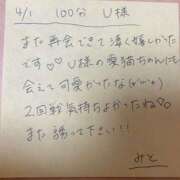 4/1 100分 U様
また再会できて凄く嬉しかった
です♡♡ U様の愛猫ちゃんにも
会えて可愛かったな(≧▽≦)
2回戦気持ちよかったね♡◇
また誘って下さい!!
みと